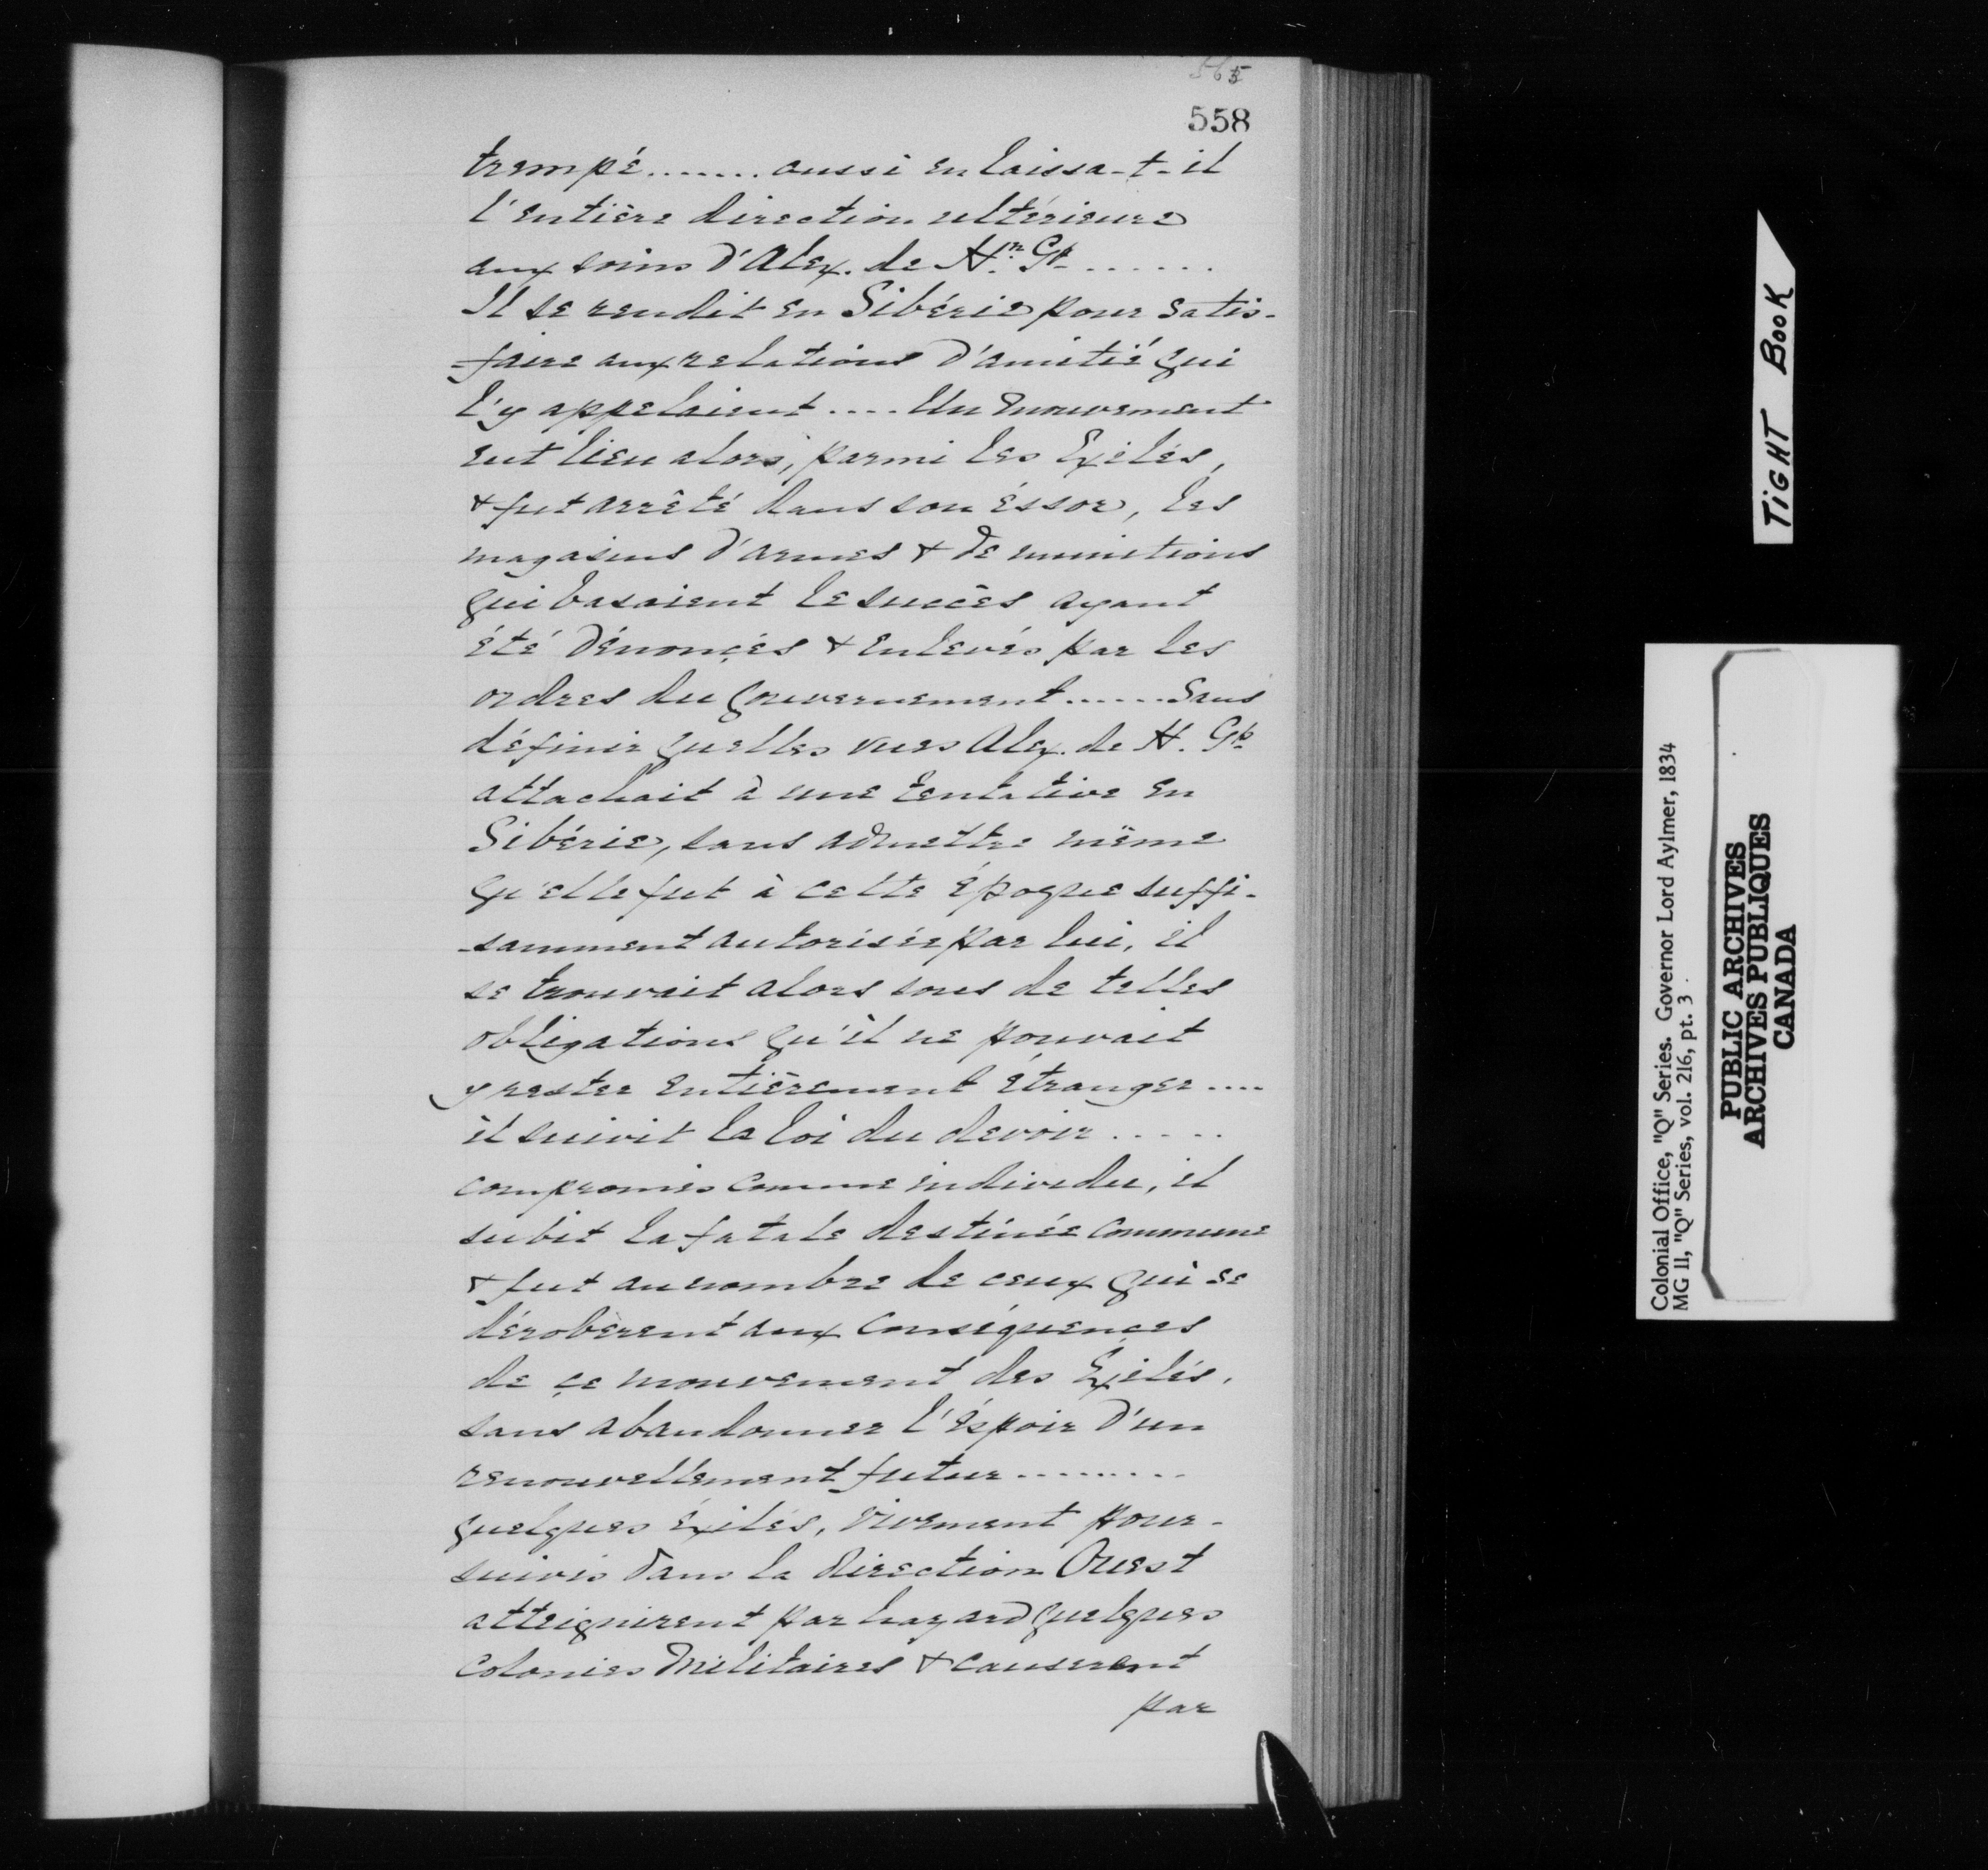 565
558
trempé........ aussi en laissa-t-il
l'entière direction ultérieure
aux soins d'Alex. de H.n Gp ......
Il se rendit en Sibérie pour satis-
-faire aux relations d'amitié qui
l'y appelaient .... Un mouvement
eut lieu alors, parmi les Exilés,
& fut arrêté dans son éssor, les
magasins d'armes & de munitions
qui basaient le succès ayant
été dénonçés & enlevés par les
ordres du gouvernement ...... Sans
définir quelles vues Alex. de H. Gp
attachait à une tentative en
Sibérie, sans admettre même
qu'elle fut à cette époque suffi-
-samment autorisée par lui, il
se trouvait alors sous de telles
obligations qu'il ne pouvait
y rester entièrement étranger ....
il suivit la loi du devoir .....
compromis comme individu, il
subit la fatale destinée commune
& fut au nombre de ceux qui se
déroberent aux conséquençes
de çe mouvement des Exilés,
sans abandonner l'éspoir d'un
renouvellement futur .........
quelques éxilés, vivement pour-
suivis dans la direction Ouest
atteignirent par hazard quelques
colonies militaires & causerent
par
TIGHT BOOK
Colonial Office, "Q" Series. Governor Lord Aylmer, 1834
MG 11, "Q" Series, vol. 216, pt. 3
PUBLIC ARCHIVES
ARCHIVES PUBLIQUES
CANADA